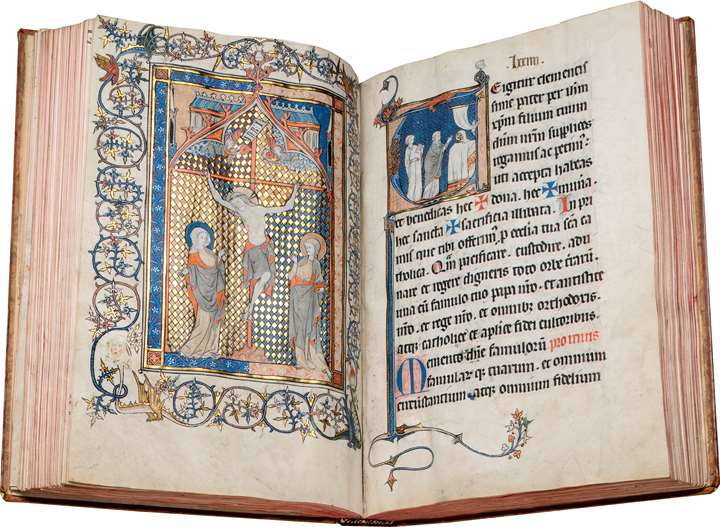 Te igitur clementis
sime pater per ihm
xpm filium tuum
dnm nrm supplices
rogamus ac petimꝰ
uti accepta habeas
et benedicas hec ✠ dona. hec ✠ munera.
hec sancta ✠ sacrificia illibata. In pri
mis que tibi offerimꝰ p ecclia tua sca ca
tholica. Qm pacificare. custodire. adu
nare et regere digneris toto orbe trarũ
una cũ famulo tuo papa nro. et antistite
nro. et rege nro. et omnibꝫ orthodoxis.
atqꝫ catholice et aplice fidei cultoribus.
Memento dne famulorũ pro uiuis
famularũ qꝫ tuarum. et omnium
circũstantium atqꝫ omnium fidelium